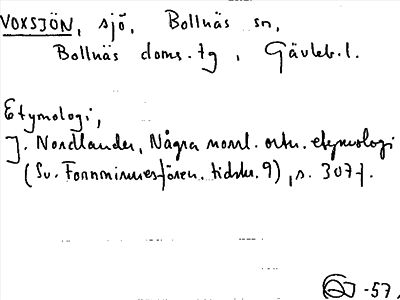 VOXSJÖN, sjö, Bollnäs sn,
Bollnäs doms.tg, Gävleb.l.
Etymologi,
J. Nordlander, Några norrl. ortn. etymologi
(Sv. Fornminnesfören. tidskr. 9), s. 307f.
-57.